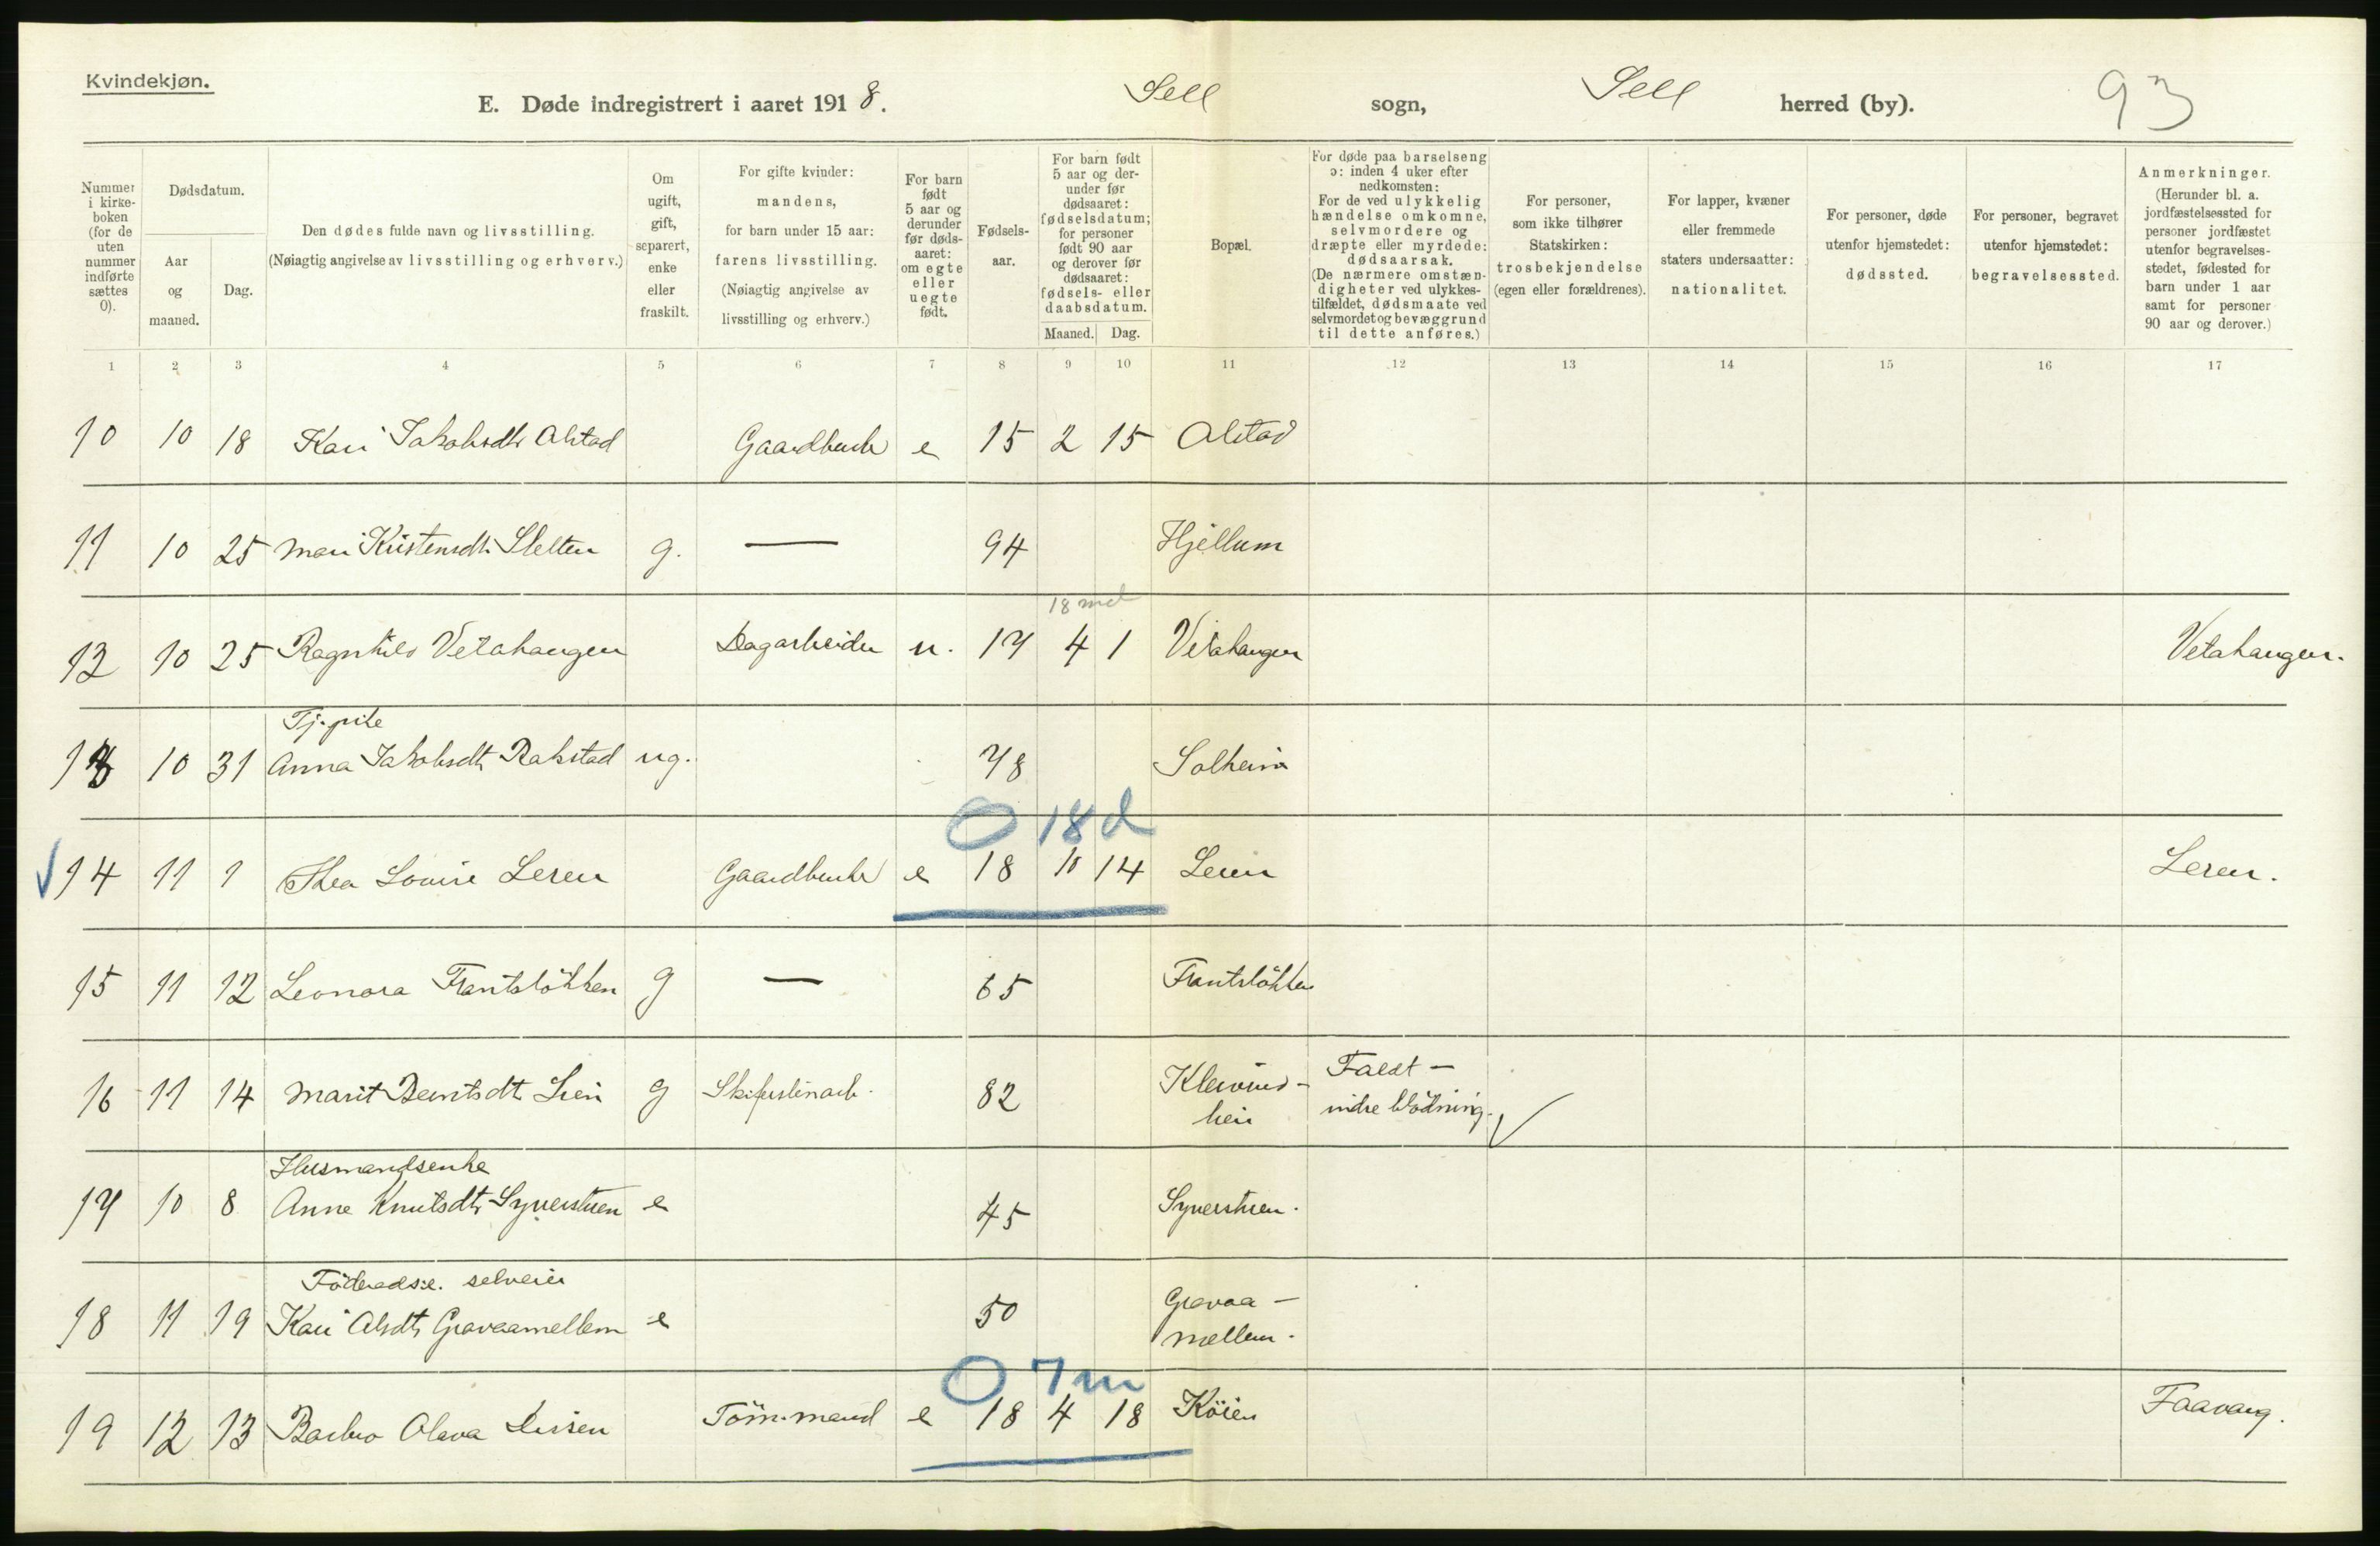 Kvindekjøn.
E. Døde indregistrert i aaret 1918. Sell sogn, Sell herred (by). 93
Nummer i kirkeboken (for de uten nummer indførte sættes 0).
Dødsdatum.
Aar og maaned.
Dag.
Den dødes fulde navn og livsstilling.
(Nøiagtig angivelse av livsstilling og erhverv.)
Om ugift, gift, separert, enke eller fraskilt.
For gifte kvinder: mandens, for barn under 15 aar: farens livsstilling. (Nøiagtig angivelse av livsstilling og erhverv.)
For barn født 5 aar og derunder før dødsaaret: om egte eller uegte født.
Fødselsaar.
For barn født 5 aar og derunder før dødsaaret: fødselsdatum; for personer født 90 aar og derover før dødsaaret: fødsels- eller daabsdatum.
Maaned. Dag.
Bopæl.
For døde paa barselseng ɔ: inden 4 uker efter nedkomsten: For de ved ulykkelig hændelse omkomne, selvmordere og dræpte eller myrdede: dødsaarsak. (De nærmere omstændigheter ved ulykkestilfældet, dødsmaate ved selvmordet og bevæggrund til dette anføres.)
For personer, som ikke tilhører Statskirken: trosbekjendelse (egen eller forældrenes).
For lapper, kvæner eller fremmede staters undersaatter: nationalitet.
For personer, døde utenfor hjemstedet: dødssted.
For personer, begravet utenfor hjemstedet: begravelsessted.
Anmerkninger. (Herunder bl. a. jordfæstelsessted for personer jordfæstet utenfor begravelsesstedet, fødested for barn under 1 aar samt for personer 90 aar og derover.)
1 2 3 4 5 6 7 8 9 10 11 12 13 14 15 16 17
10 10 18 Kari Jakobsdtr Alstad Gaardbruk e 15 2 15 Alstad
11 10 25 Mari Kristensdt. Sletten g. — 94 Hjellum
18 md
12 10 25 Ragnhild Vetahaugen Dagarbeider u. 17 4 1 Vetahaugen Vetahaugen.
Tj.pike
13 10 31 Anna Jakobsdt. Rakstad ug. 78 Solheim
0 18 d
14 11 1 Thea Louise Leren Gaardbruk e 18 10 14 Leren Leren.
15 11 12 Leonora Frantsløkken g — 65 Frantsløkken
16 11 14 Marit Berntsdt. Lien g 82
Faldt —
indre blødning.
Husmandsenke
17 10 8 Anne Knutsdt. Syverstuen e 45 Syverstuen.
Föderadse. selveier
18 11 19 Kari Olsdt. Gravaamellem e 50 Gravaa-
mellem.
0 7 m
19 12 13 Barbro Olava Töm.mand e 18 4 18 Köien Faavang.